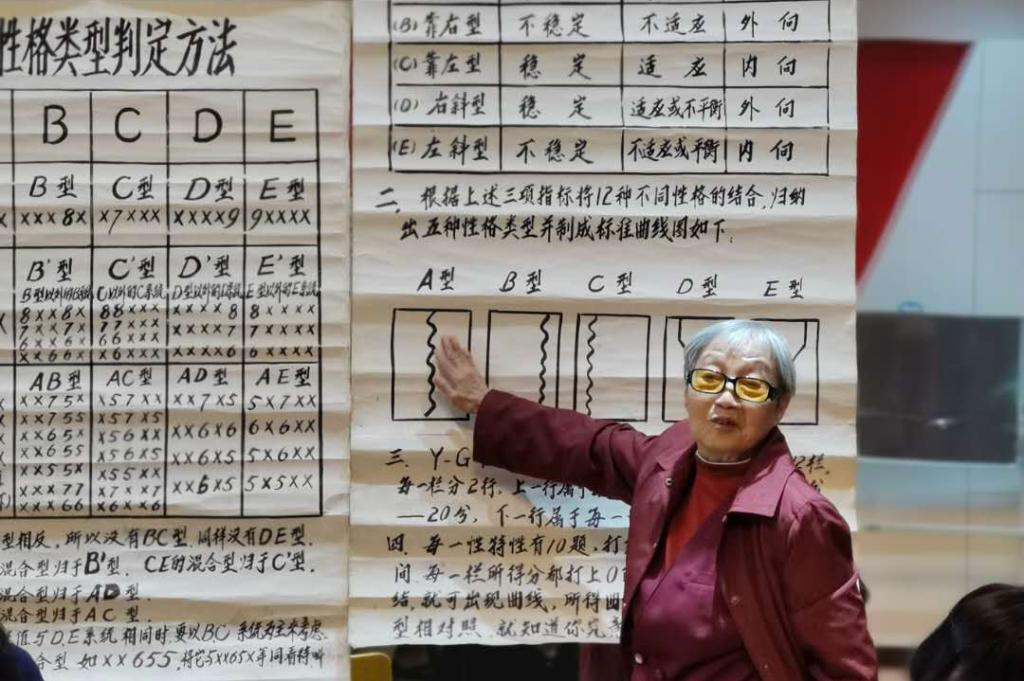 性格类型判定方法
B C D E
B型 C型 D型 E型
xxx8x x7xxx xxxx9 9xxxx
B'型 C'型 D'型 E'型
B型以外的B系统 C以外的C系统 D型以外的D系统 E型以外的E系统
8xx8x 88xxx xxxx8 8xxxx
7xx7x 77xxx xxxx7 7xxxx
6xx6x 66xxx
xx66x x6xxx xxxx6 6xxxx
AB型 AC型 AD型 AE型
xx75x x57xx xx7x5 5x7xx
xx755 x57x5
xx65x x56xx xx6x6 6x6xx
xx655 x56x5
xxx55 x55xx xx6x5 5x6xx
xxx77 x7xx7
xxx66 x6xx6 5x5xx
型相反,所以没有BC型,同样没有DE型.
混合型归于B'型. CE的混合型归于C'型.
混合型归于AD型.
混合型归于AC型.
值与D,E系统相同时,要以BC系统为主来考虑
合型 如xx655,将它与xx65x等同看待
(B)靠右型 不稳定 不适应 外向
(C)靠左型 稳定 适应 内向
(D)右斜型 稳定 适应或不平衡 外向
(E)左斜型 不稳定 不适应或平衡 内向
二. 根据上述三项指标将12种不同性格的结合,归纳
出五种性格类型并制成标准曲线图如下:
A型 B型 C型 D型 E型
三. Y-G 2栏.
每一栏分2行.上一行属于
——20分,下一行属于每一
四. 每一性特性有10题,打
间.每一栏所得分都打上0
结,就可出现曲线,所得曲
型相对照.就知道你